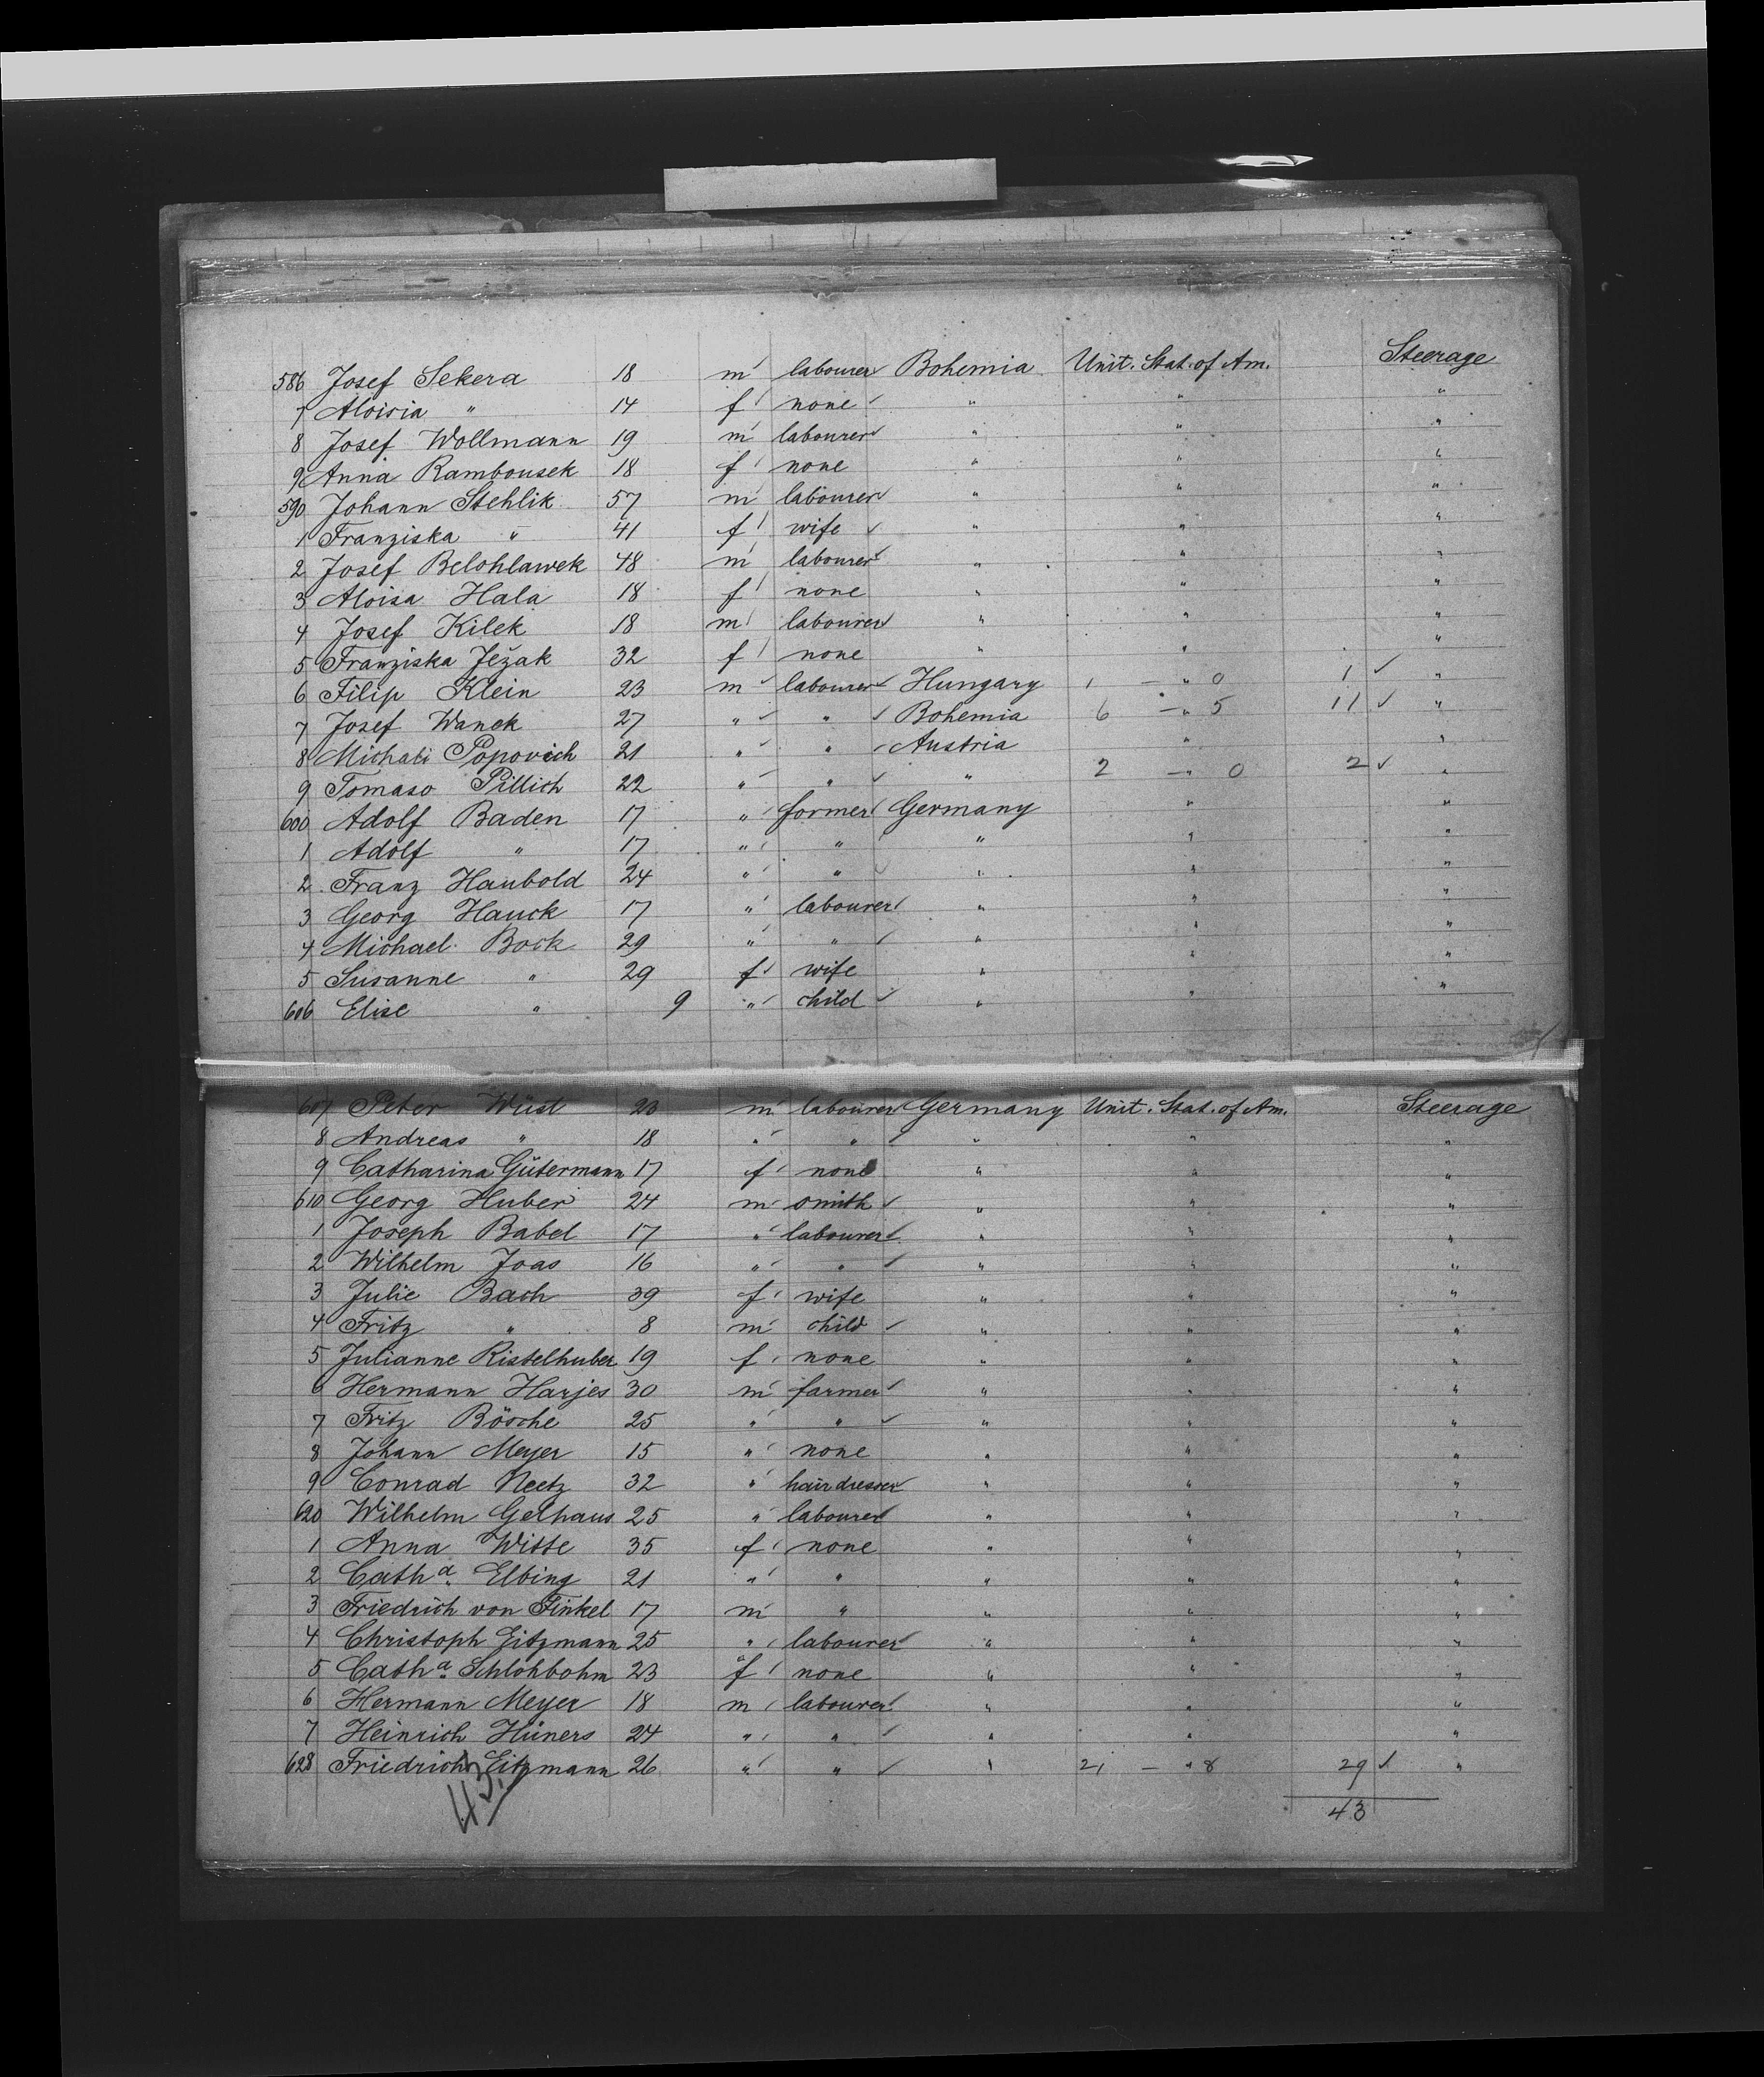 586 Josef Sekera 18 m labourer Bohemia Unit. Stat. of Am. Steerage
7 Aloisia " 14 f none " " "
8 Josef Wollmann 19 m labourer " " "
9 Anna Rambousek 18 f none " " "
590 Johann Stehlik 57 m labourer " " "
1 Franziska " 41 f wife " " "
2 Josef Belohlawek 48 m labourer " " "
3 Aloisa Hala 18 f none " " "
4 Josef Kilek 18 m labourer " " "
5 Franziska Ježak 32 f none " " "
6 Filip Klein 23 m labourer Hungary 1 — " 0 1 ✓ "
7 Josef Wanek 27 " " Bohemia 6 — " 5 11 ✓ "
8 Popovich 21 " " Austria " "
9 Tomaso Pillich 22 " " " 2 — " 0 2 ✓ "
600 Adolf Baden 17 " former Germany " "
1 Adolf " 17 " " " " "
2 Franz Haubold 24 " " " " "
3 Georg Hauck 17 " labourer " " "
4 Michael Bock 29 " " " " "
5 Susanne " 29 f wife " " "
606 Elise " 9 " child " " "
607 Peter Wüst 23 m labourer Germany Unit. Stat. of Am. Steerage
8 Andreas " 18 " " " " "
9 Catharina Gütermann 17 f none " " "
610 Georg Huber 24 m smith " " "
1 Joseph Babel 17 " labourer " " "
2 Wilhelm Joas 16 " " " " "
3 Julie Bach 39 f wife " " "
4 Fritz " 8 m child " " "
5 Julianne Ristelhuber 19 f none " " "
6 Hermann Harjes 30 m farmer " " "
7 Fritz Bösche 25 " " " " "
8 Johann Meyer 15 " none " " "
9 Conrad Neetz 32 " hairdresser " " "
620 Wilhelm Gelhaus 25 " labourer " " "
1 Anna Witte 35 f none " " "
2 Cath.a Elbing 21 " " " " "
3 Friedrich von Finkel 17 m " " " "
4 Christoph Eitzmann 25 " labourer " " "
5 Cath.a Schlohbohm 23 f none " " "
6 Hermann Meyer 18 m labourer " " "
7 Heinrich Hüners 24 " " " " "
628 Friedrich Eitzmann 26 " " " 21 — " 8 29 ✓ "
43
43